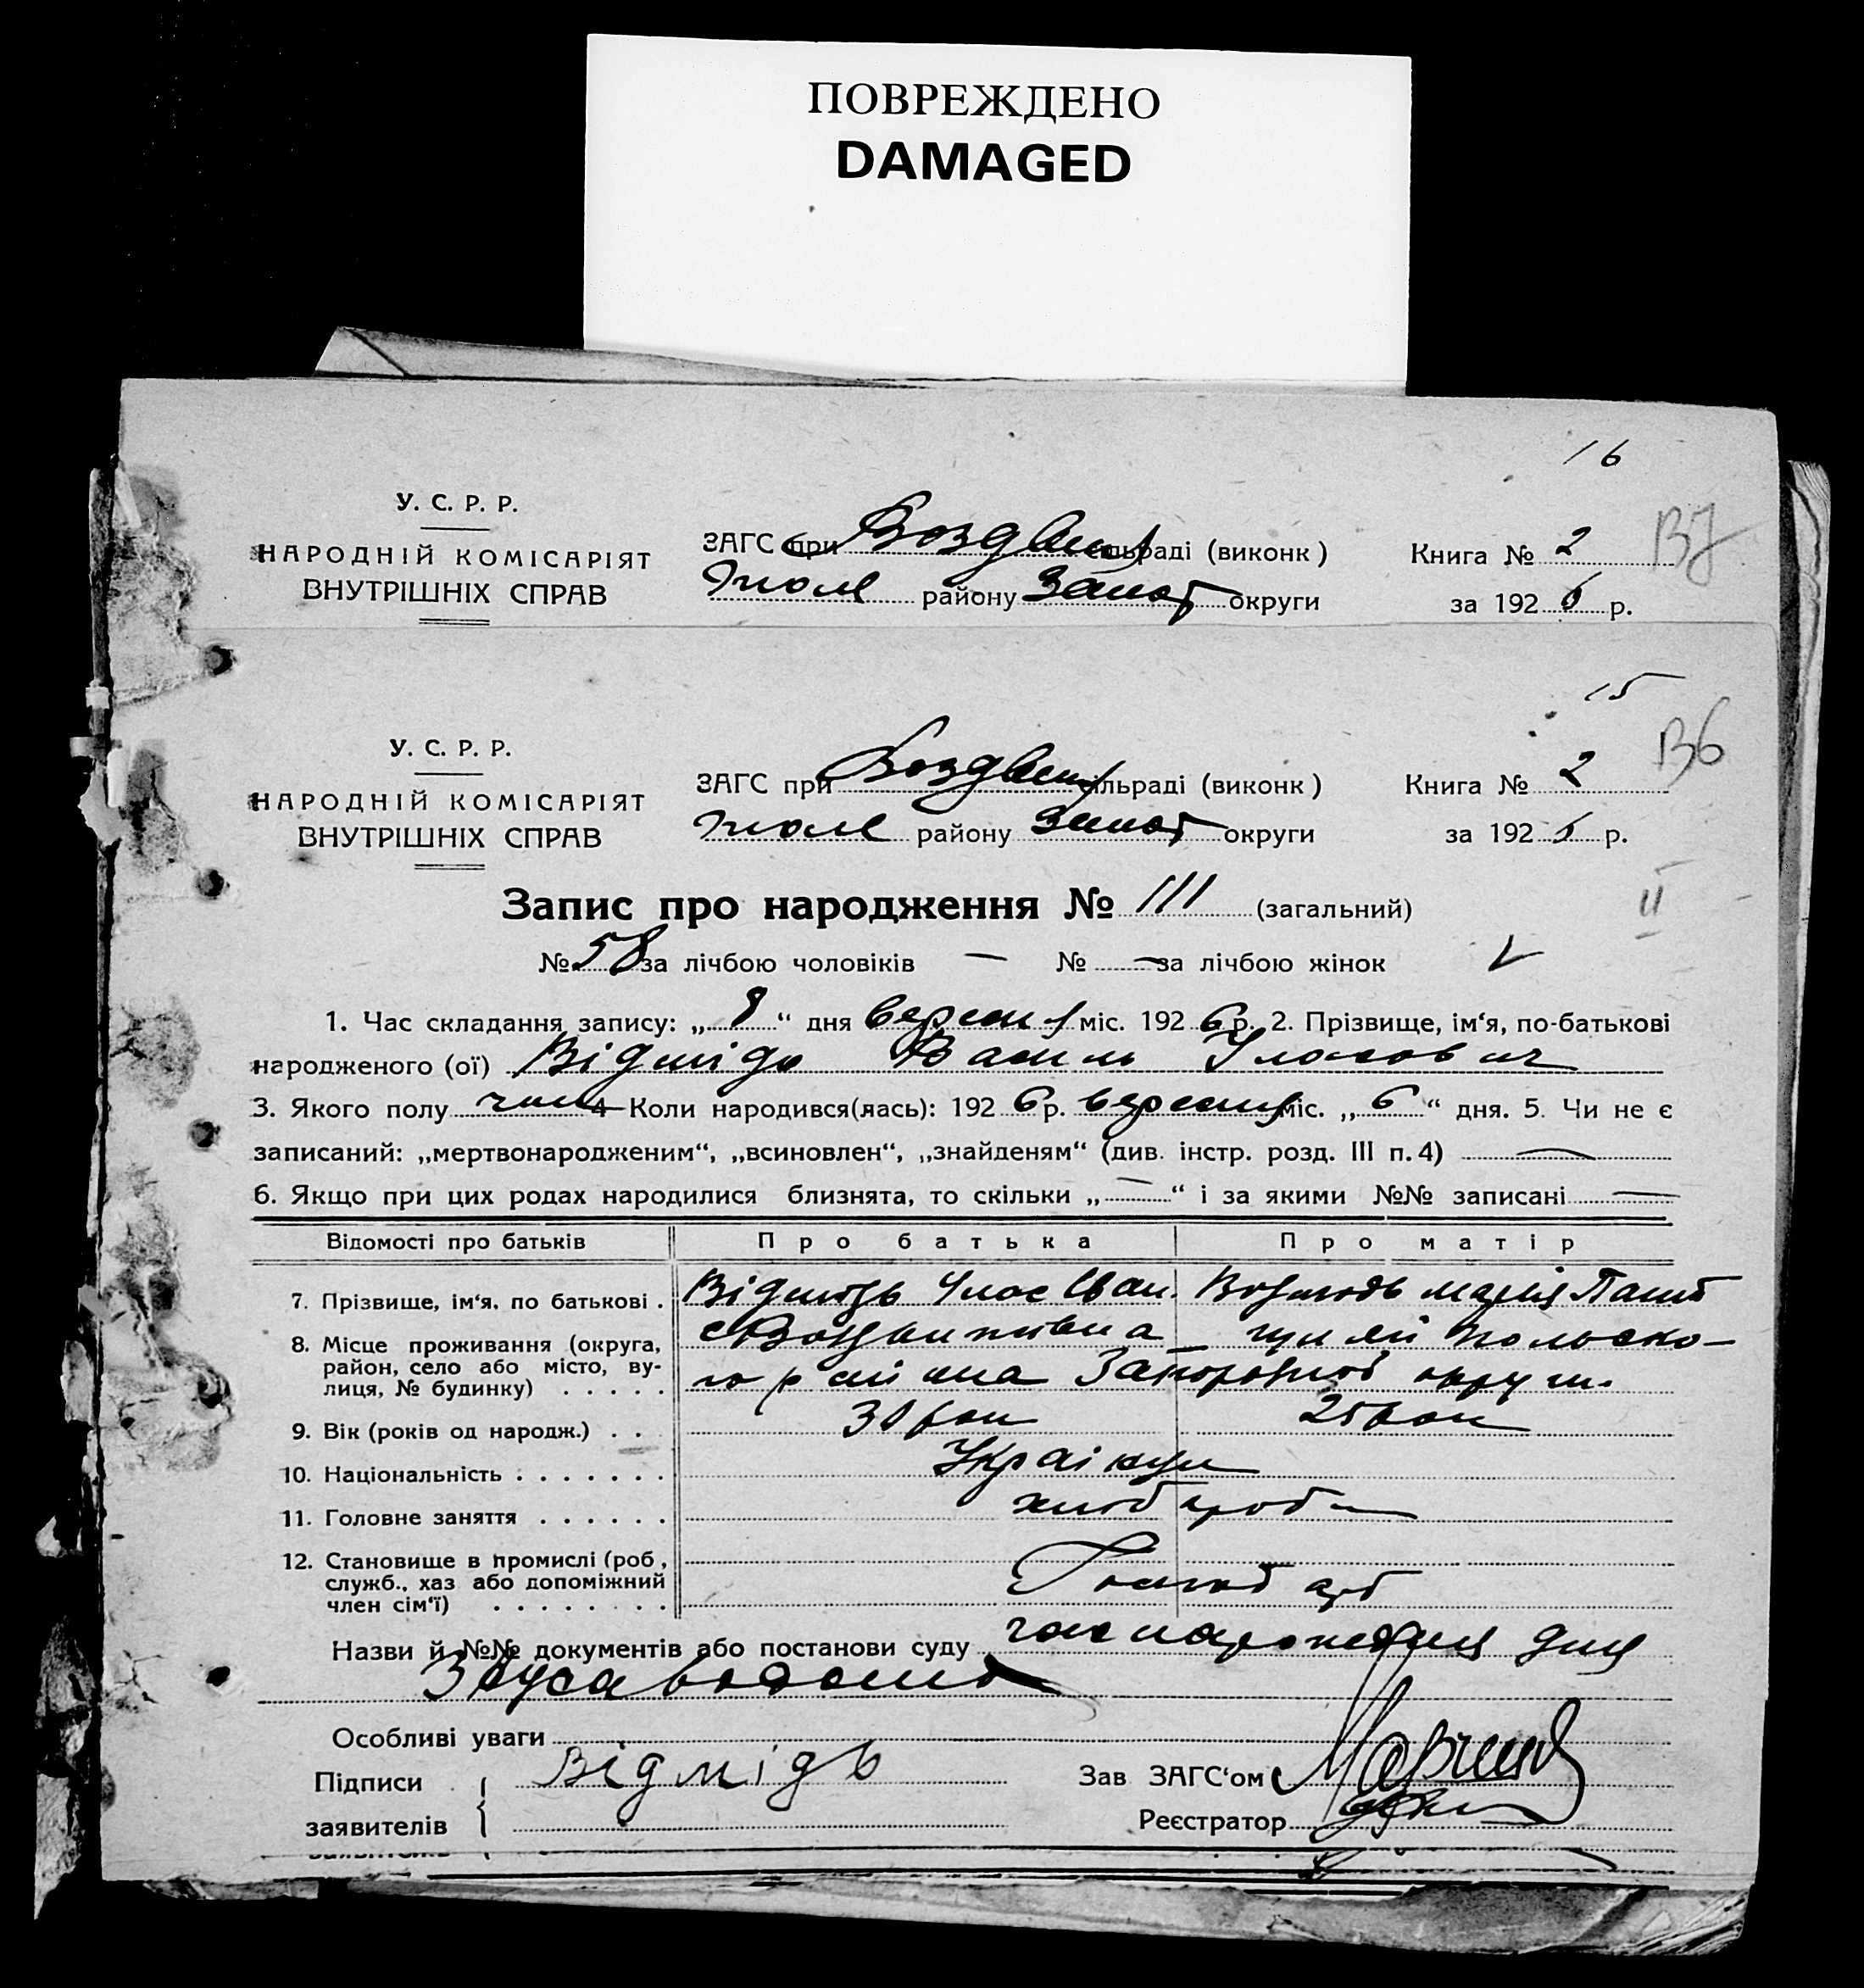 ПОВРЕЖДЕНО
DAMAGED
16
У. С. Р. Р.
НАРОДНІЙ КОМІСАРІЯТ
ВНУТРІШНІХ СПРАВ
ЗАГС при Воздвиж сільраді (виконк)
району Запор округи
Книга № 2
за 1926 р.
В7
15
В6
У. С. Р. Р.
НАРОДНІЙ КОМІСАРІЯТ
ВНУТРІШНІХ СПРАВ
ЗАГС при Воздвиж сільраді (виконк)
району Запор округи
Книга № 2
за 1926 р.
Запис про народження № 111 (загальний)
II
№ 58 за лічбою чоловіків — № — за лічбою жінок V
1. Час складання запису: „ 8 “ дня вересня міс. 1926 р. 2. Прізвище, ім‘я, по-батькові
народженого (ої) Відмідь Василь Уласович
3. Якого полу чол 4 Коли народився(лась): 1926 р. вересня міс. „ 6 “ дня. 5. Чи не є
записаний: „мертвонародженим“, „всиновлен“, „знайденям“ (див. інстр. розд. III п. 4) —
6. Якщо при цих родах народилися близнята, то скільки „ — “ і за якими №№ записані —
Відомості про батьків Про батька Про матір
7. Прізвище, ім‘я, по батькові . Відмідь Улас Іван. Відмідь Марія
8. Місце проживання (округа,
район, село або місто, ву-
лиця, № будинку) . . . . .
с Воздвижівка
го району Запорізької округи.
9. Вік (років од народж.) . . 30 рок 25 рок
10. Національність . . . . . . . Українці
11. Головне заняття . . . . . . хлібороб
12. Становище в промислі (роб,
служб., хаз або допоміжний
член сім‘ї) . . . . . . . .
Назви й №№ документів або постанови суду
Особливі уваги
Підписи
заявителів {
Відмідь
Зав ЗАГС‘ом
Реєстратор